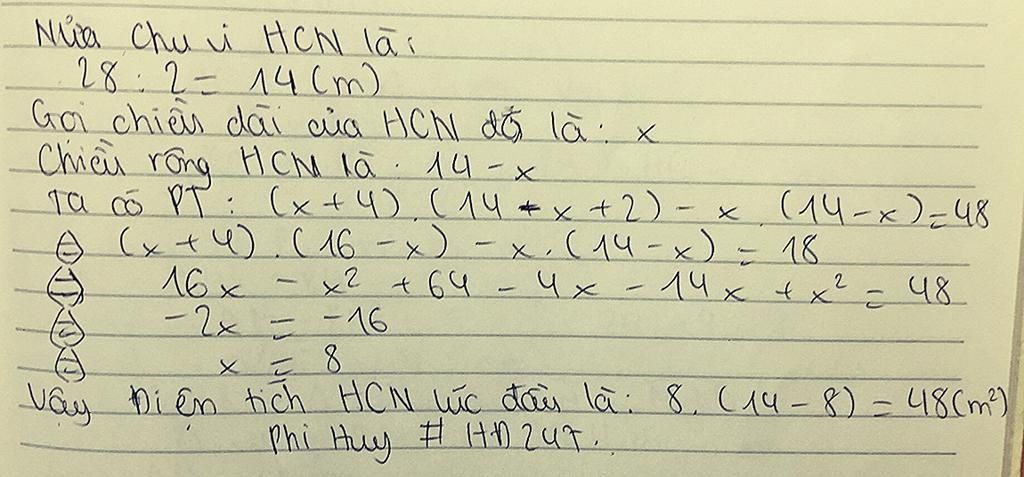 Nửa chu vi HCN là:
28 : 2 = 14 (m)
Gọi chiều dài của HCN đó là: x
Chiều rộng HCN là: 14 - x
Ta có PT: (x + 4) . (14 - x + 2) - x . (14 - x) = 48
⇔ (x + 4) . (16 - x) - x . (14 - x) = 18
⇔ 16x - x² + 64 - 4x - 14x + x² = 48
⇔ -2x = -16
⇔ x = 8
Vậy Diện tích HCN lúc đầu là: 8. (14 - 8) = 48 (m²)
Phi Huy # HD247.